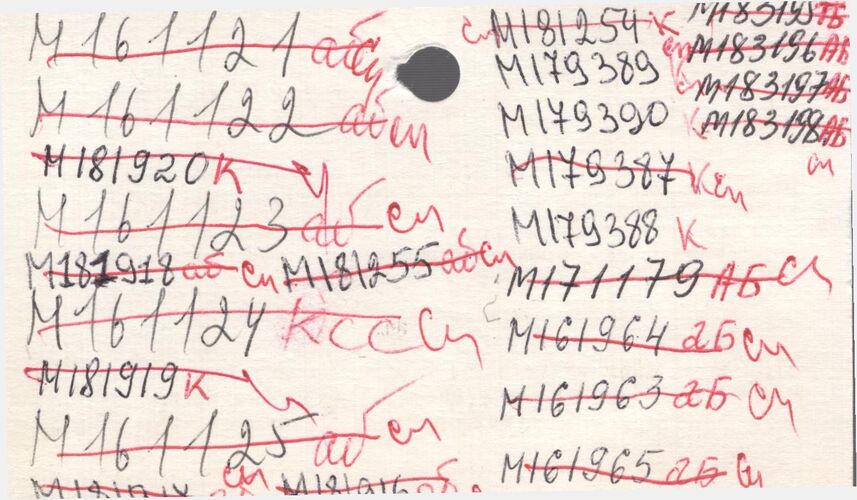 М161121 аб сч
М161122 аб сч
М181920 К
М161123 аб сч
М181918 аб сч М181255 аб сч
М161124 К ссс сч
М181919 К
М161125 аб сч
сч М181916 аб
сч М181254 К
М179389
М179390 К
М179387 К сч
М179388 К
М171179 АБ сч
М161964 аБ сч
М161963 аБ сч
М161965 аБ сч
М183195 ТБ
сч М183196 АБ
М183197 АБ
М183198 АБ
сч